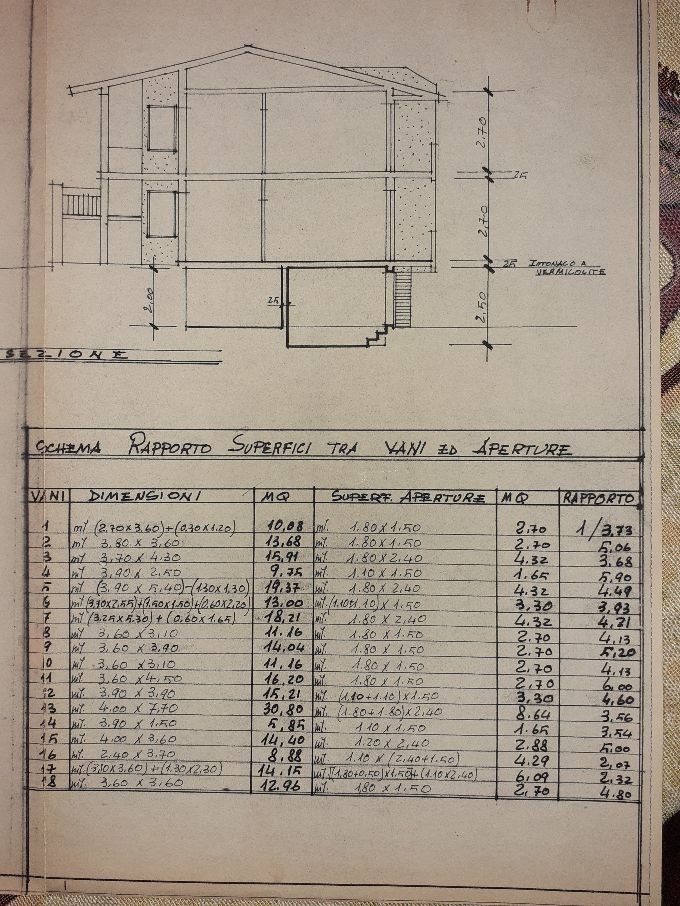 2.70
25
2.70
25 INTONACO A
VERMICOLITE
2.00
25
2.50
SEZIONE
SCHEMA RAPPORTO SUPERFICI TRA VANI ED APERTURE
VANI DIMENSIONI MQ SUPERF APERTURE MQ RAPPORTO
1 mt (2.70 x 3.60)+(0.30 x 1.20) 10,08 mt. 1.80 x 1.50 2.70 1/3,73
2 mt 3.80 x 3.60 13,68 mt. 1.80 x 1.50 2.70 5,06
3 mt 3.70 x 4.30 15,91 mt. 1.80 x 2.40 4.32 3,68
4 mt 3.90 x 2.50 9,75 mt. 1.10 x 1.50 1.65 5,90
5 mt (3.90 x 5.40)-(1.30 x 1.30) 19,37 mt. 1.80 x 2.40 4.32 4,49
6 mt (3.70 x 2.55)+(1.50 x 1.50)+(0.60 x 2.20) 13,00 mt. (1.10+1.10) x 1.50 3,30 3,93
7 mt (3.25 x 5.30)+(0.60 x 1.65) 18,21 mt. 1.80 x 2.40 4.32 4,21
8 mt. 3.60 x 3.10 11.16 mt. 1.80 x 1.50 2.70 4.13
9 mt. 3.60 x 3.90 14,04 mt. 1.80 x 1.50 2.70 5,20
10 mt. 3.60 x 3.10 11,16 mt. 1.80 x 1.50 2.70 4.13
11 mt. 3.60 x 4.50 16,20 mt. 1.80 x 1.50 2.70 6,00
12 mt. 3.90 x 3.90 15,21 mt. (1.10+1.10) x 1.50 3,30 4,60
13 mt. 4.00 x 7.70 30,80 mt. (1.80+1.80) x 2.40 8.64 3,56
14 mt. 3.90 x 1.50 5,85 mt. 1.10 x 1.50 1.65 3,54
15 mt. 4.00 x 3.60 14,40 mt. 1.20 x 2.40 2.88 5,00
16 mt. 2.40 x 3.70 8,88 mt. 1.10 x (2.40+1.50) 4.29 2,07
17 mt. (3.10 x 3.60)+(1.30 x 2.30) 14,15 mt. [(1.80+0.50) x 1.50]+(1.10 x 2.40) 6,09 2,32
18 mt. 3.60 x 3.60 12.96 mt. 1.80 x 1.50 2,70 4.80